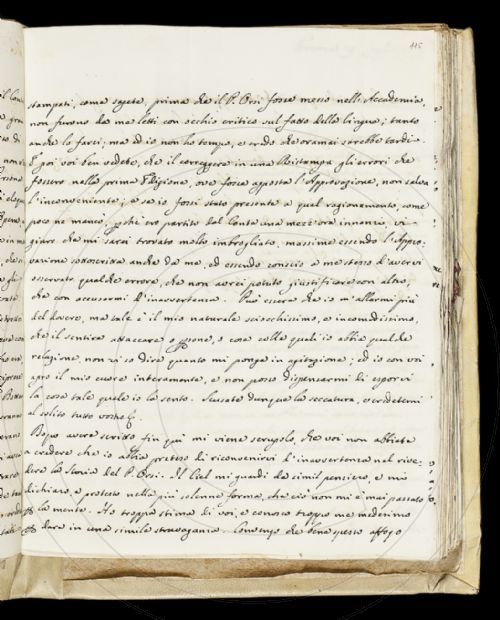 115
stampati, come sapete, prima che il P. Orsi fosse messo nell'Accademia,
non furono da me letti con occhio critico sul fatto della lingua; tanto
anche lo farei; ma ed io non ho tempo, e credo che oramai sarebbe tardi.
E poi voi ben vedete, che il correggere in una Ristampa gli errori che
fossero nella prima Edizione, ove fosse apposta l'Approvazione, non salva
l'inconveniente; e se io fossi stato presente a quel ragionamento, come
poco ne mancò, perchè ero partito dal Conta una mezz'ora innanzi, vi
giuro che mi sarei trovato molto imbrogliato, massime essendo l'Appro-
vazione sottoscritta anche da me, ed essendo conscio a me stesso d'avervi
osservato qualche errore, che non avrei potuto giustificare con altro,
che con accusarmi d'inavvertenza. Può essere che io m'allarmi più
del dovere, ma tale è il mio naturale sciocchissimo, e incomodissimo,
che il sentire attaccare o persone, o cose colle quali io abbia qualche
relazione, non vi so dire quanto mi ponga in agitazione; ed io con voi
apro il mio cuore interamente, e non posso dispensarmi di esporvi
la cosa tale quale io la sento. Scusate dunque la seccatura, e credetemi
al solito tutto vostro
Dopo avere scritto fin qui mi viene scrupolo, che voi non abbiate
a credere che io abbia preteso di riconvenirvi d'inavvertenza nel rive-
dere la Storia del P. Orsi. Il Ciel mi guardi da simil pensiero, e mi
dichiaro, e protesto nella più solenne forma, che ciò non mi è mai passato
per la mente. Ho troppa stima di voi, e conosco troppo me medesimo
per dare in una simile stravaganza. Convengo che bene spesso affogo